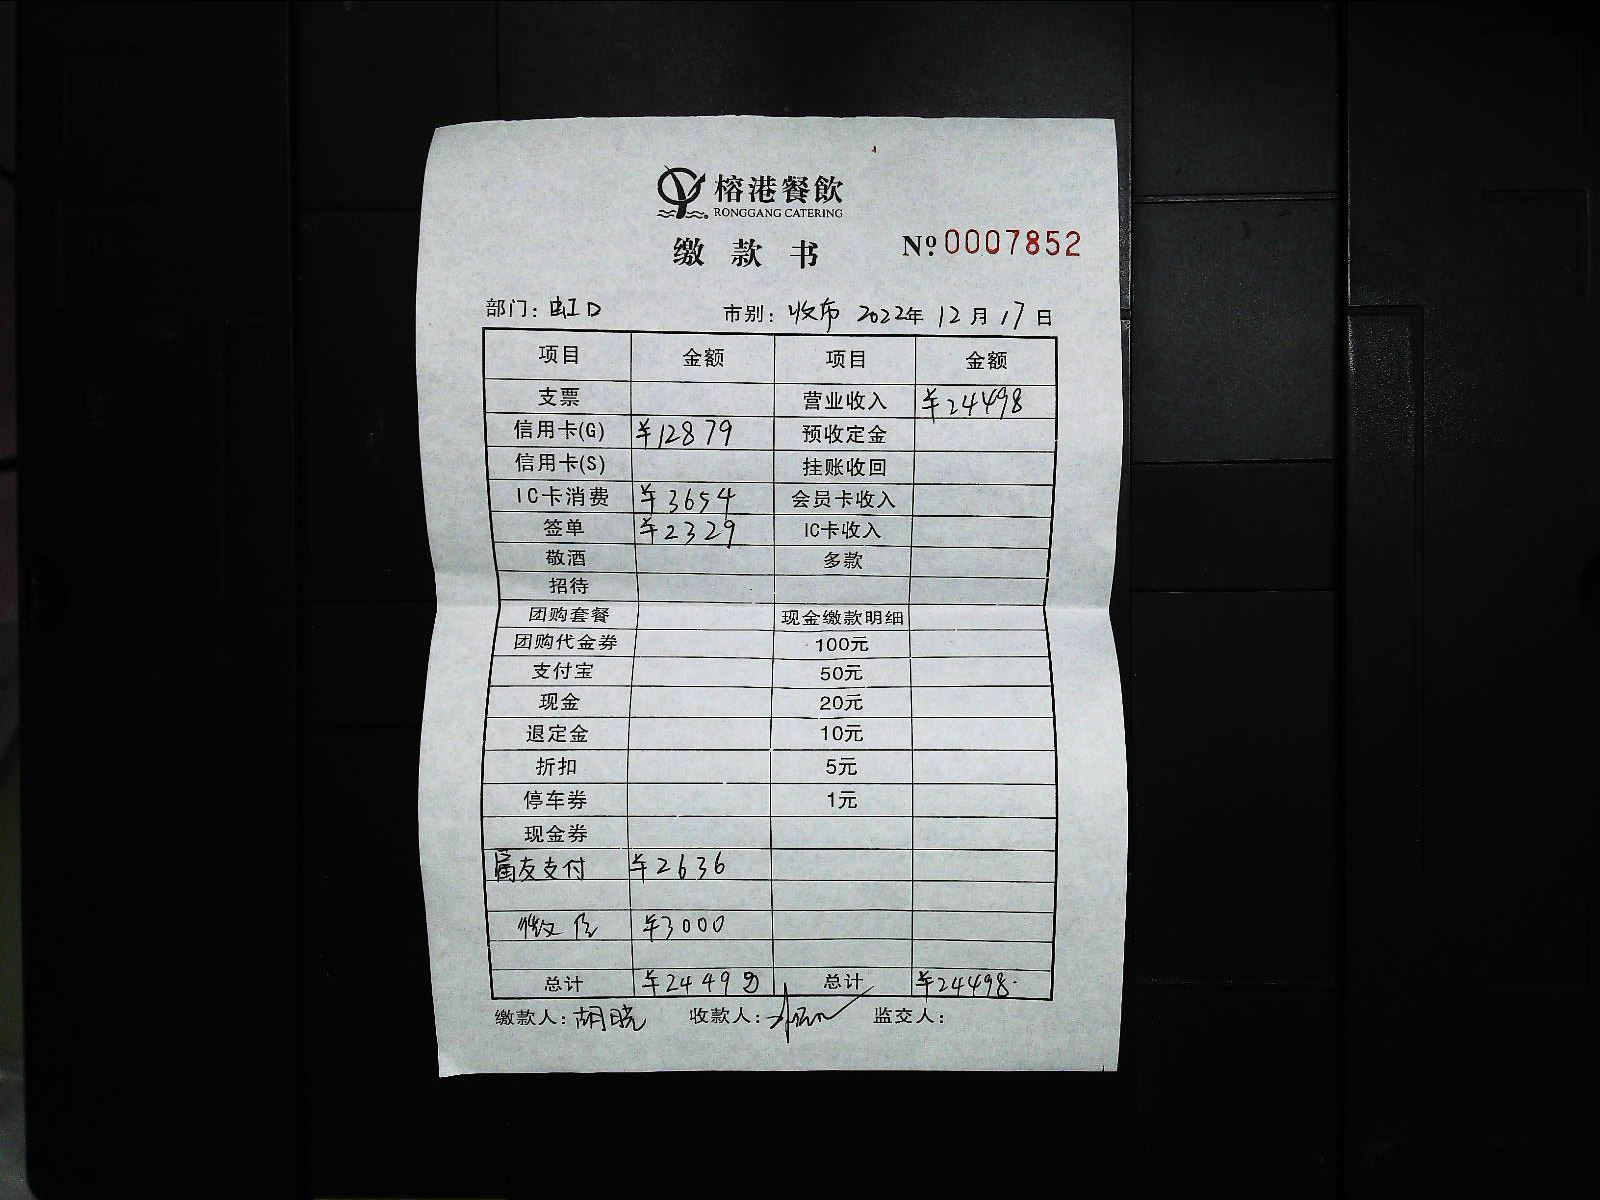 榕港餐飲
RONGGANG CATERING
缴款书 Nº 0007852
部门：虹口 市别：收市 2022年 12月 17日
项目 金额 项目 金额
支票 营业收入 ¥24498
信用卡(G) ¥12879 预收定金
信用卡(S) 挂账收回
IC卡消费 ¥3654 会员卡收入
签单 ¥2329 IC卡收入
敬酒 多款
招待
团购套餐 现金缴款明细
团购代金券 100元
支付宝 50元
现金 20元
退定金 10元
折扣 5元
停车券 1元
现金券
友支付 ¥2636
微信 ¥3000
总计 ¥24498 总计 ¥24498
缴款人：胡晓 收款人： 监交人：